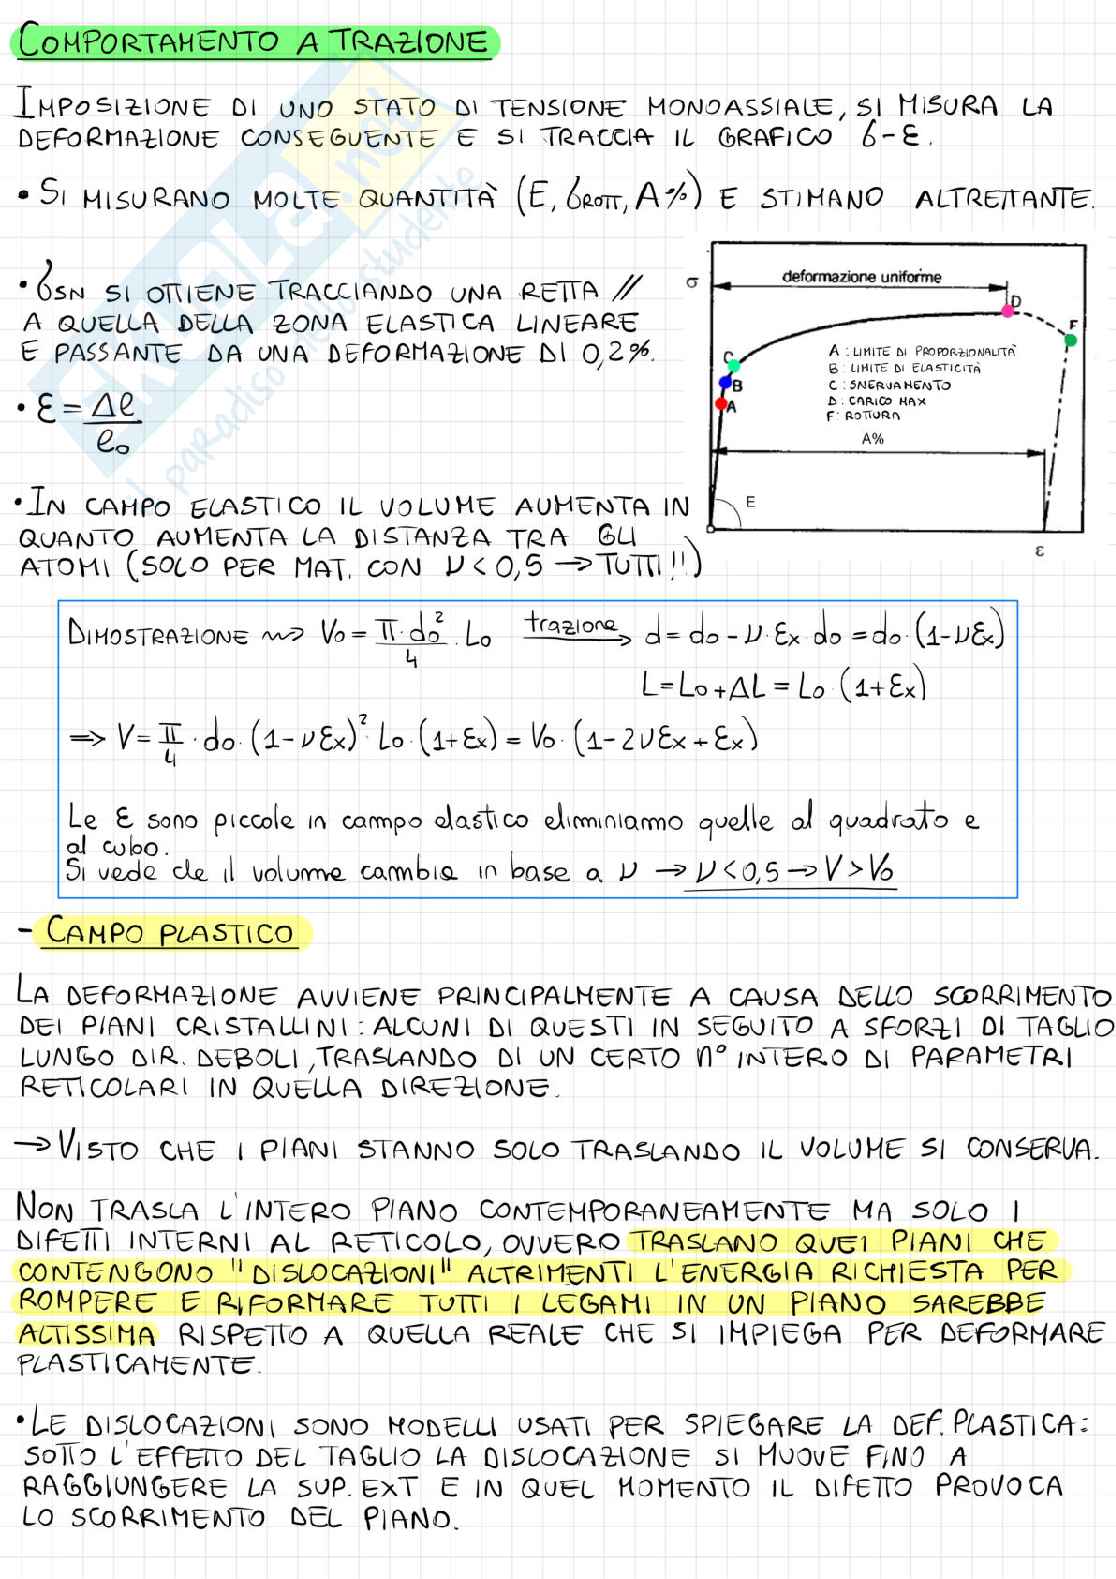 COMPORTAMENTO A TRAZIONE
IMPOSIZIONE DI UNO STATO DI TENSIONE MONOASSIALE, SI MISURA LA
DEFORMAZIONE CONSEGUENTE E SI TRACCIA IL GRAFICO σ-ε.
• SI MISURANO MOLTE QUANTITÀ (E, σROTT, A%) E STIMANO ALTRETTANTE.
• σSN SI OTTIENE TRACCIANDO UNA RETTA //
A QUELLA DELLA ZONA ELASTICA LINEARE
E PASSANTE DA UNA DEFORMAZIONE DI 0,2%.
• ε = Δl
l₀
σ
deformazione uniforme
D
F
C
B
A
A : LIMITE DI PROPORZIONALITÀ
B : LIMITE DI ELASTICITÀ
C : SNERVAMENTO
D : CARICO MAX
F : ROTTURA
A%
E
ε
• IN CAMPO ELASTICO IL VOLUME AUMENTA IN
QUANTO AUMENTA LA DISTANZA TRA GLI
ATOMI (SOLO PER MAT. CON ν < 0,5 → TUTTI!!)
DIMOSTRAZIONE ⇝ V₀ = π·d₀²/4 · L₀ trazione → d = d₀ - ν·εx·d₀ = d₀·(1-νεx)
L = L₀ + ΔL = L₀·(1+εx)
⇒ V = π/4 · d₀·(1-νεx)²·L₀·(1+εx) = V₀·(1-2νεx+εx)
Le ε sono piccole in campo elastico eliminiamo quelle al quadrato e
al cubo.
Si vede che il volume cambia in base a ν → ν < 0,5 → V > V₀
- CAMPO PLASTICO
LA DEFORMAZIONE AVVIENE PRINCIPALMENTE A CAUSA DELLO SCORRIMENTO
DEI PIANI CRISTALLINI: ALCUNI DI QUESTI IN SEGUITO A SFORZI DI TAGLIO
LUNGO DIR. DEBOLI, TRASLANDO DI UN CERTO N° INTERO DI PARAMETRI
RETICOLARI IN QUELLA DIREZIONE.
→ VISTO CHE I PIANI STANNO SOLO TRASLANDO IL VOLUME SI CONSERVA.
NON TRASLA L'INTERO PIANO CONTEMPORANEAMENTE MA SOLO I
DIFETTI INTERNI AL RETICOLO, OVVERO TRASLANO QUEI PIANI CHE
CONTENGONO "DISLOCAZIONI" ALTRIMENTI L'ENERGIA RICHIESTA PER
ROMPERE E RIFORMARE TUTTI I LEGAMI IN UN PIANO SAREBBE
ALTISSIMA RISPETTO A QUELLA REALE CHE SI IMPIEGA PER DEFORMARE
PLASTICAMENTE.
• LE DISLOCAZIONI SONO MODELLI USATI PER SPIEGARE LA DEF. PLASTICA:
SOTTO L'EFFETTO DEL TAGLIO LA DISLOCAZIONE SI MUOVE FINO A
RAGGIUNGERE LA SUP. EXT E IN QUEL MOMENTO IL DIFETTO PROVOCA
LO SCORRIMENTO DEL PIANO.